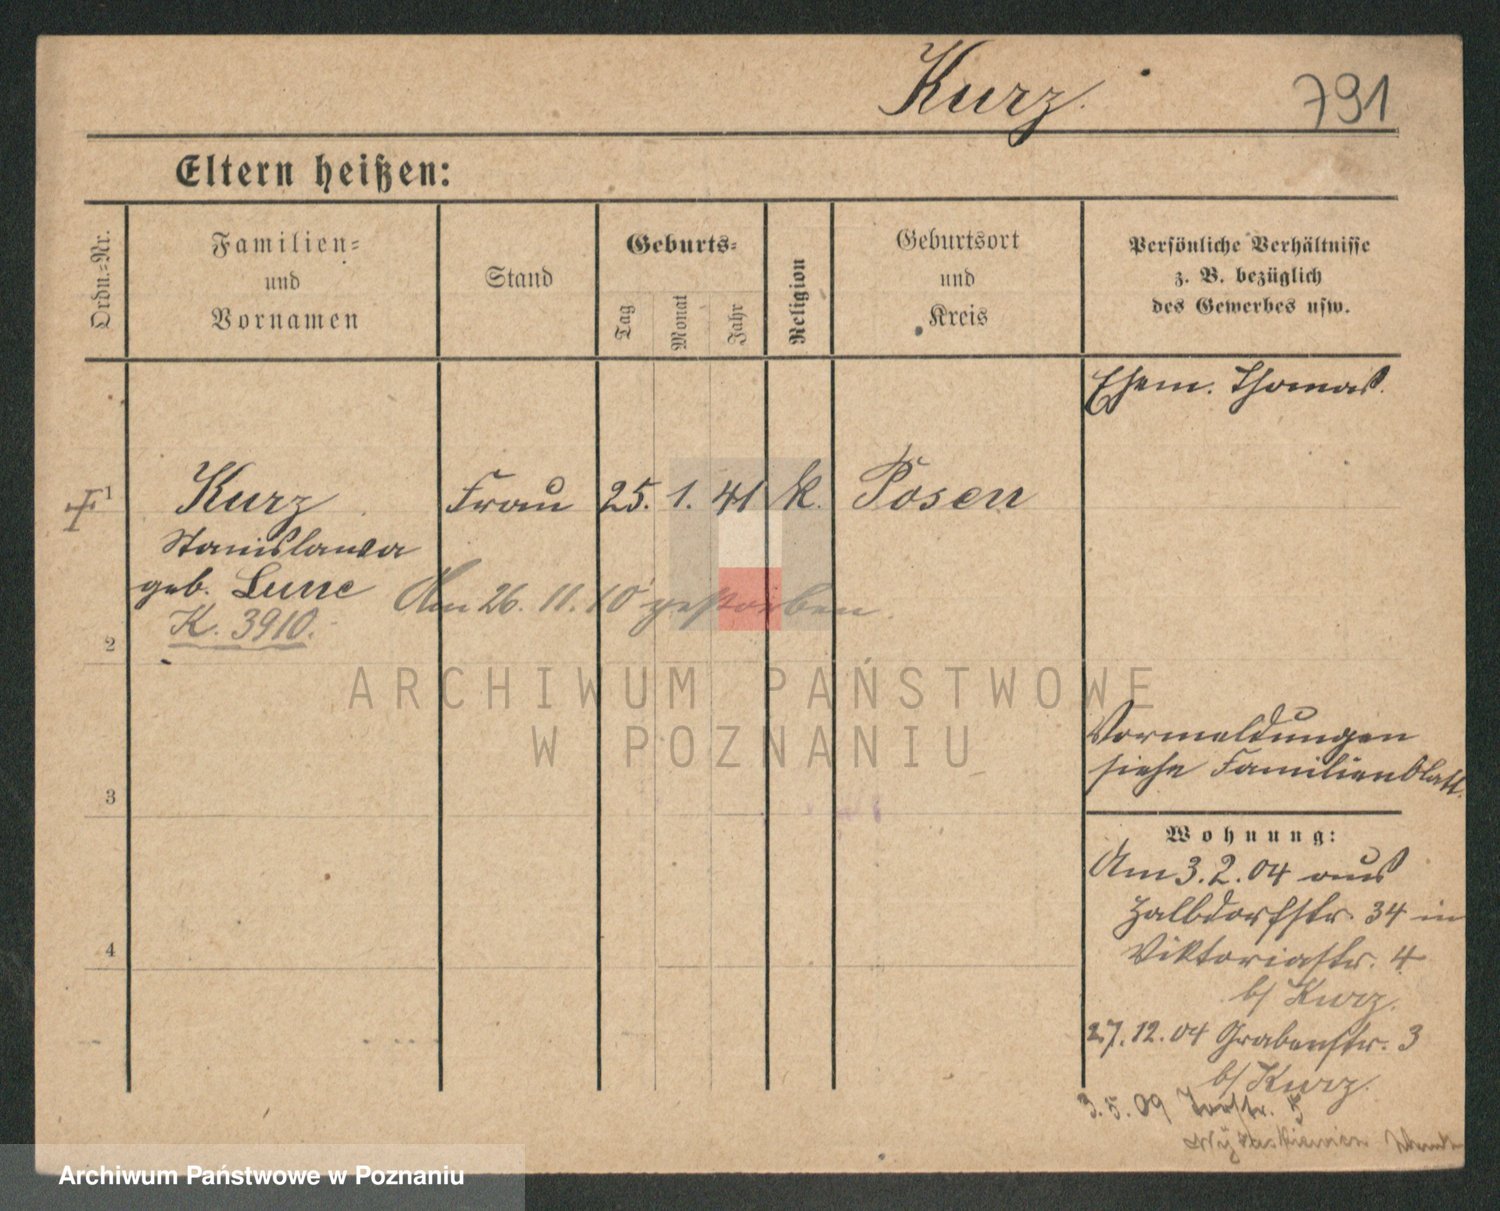 Kurz.
791
Eltern heißen:
Ordn.=Nr.
Familien=
und
Vornamen
Stand
Geburts=
Tag
Monat
Jahr
Religion
Geburtsort
und
Kreis
Persönliche Verhältnisse
z. B. bezüglich
des Gewerbes usw.
Ehem. Thomas.
1 Kurz Frau 25. 1. 41 k. Posen
Stanislawa
geb.
Am 26. 11. 10 gestorben
K. 3910.
2
ARCHIWUM PAŃSTWOWE
W POZNANIU
Vormeldungen
siehe Familienblatt.
3
Wohnung:
Am 3.2.04 aus
Halbdorfstr. 34 in
Viktoriastr. 4
b/ Kurz.
4
27.12.04 Grabenstr. 3
b/ Kurz.
3.5.09 Torstr. 5
Archiwum Państwowe w Poznaniu